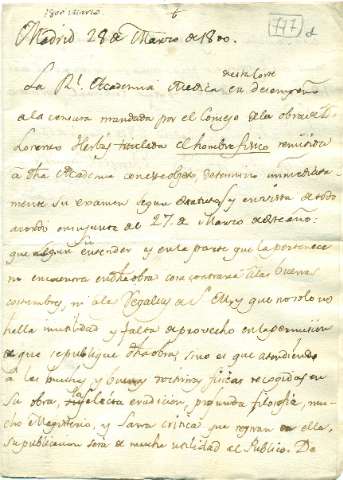 1800 Marzo
t
717 d
Madrid 28 de Marzo de 1800.
de esta Corte
La Rl. Academia Medica en desempeño
a la censura mandada por el Consejo de la obra de Dn.
Lorenzo Herbas titulada el hombre fisico remitida
a dha Academia con este objeto determinó inmediata-
mente su examen segun estatutos y en vista de todo
acordó en su junta del 27 de Marzo de este año:
que segun su entender y en la parte que la pertenece
no encuentra en dha obra cosa contraria a las buenas
costumbres, ni a las Regalias de S. M. y que no solo no
halla inutilidad y falta de provecho en la permision
de que se publique dha obra, sino es que atendiendo
a las muchas y buenas doctrinas fisicas recogidas en
su obra, la selecta erudicion, profunda filosofia, mu-
cho Magisterio, y sana critica que reynan en ella,
su publicacion será de mucha utilidad al Publico. De